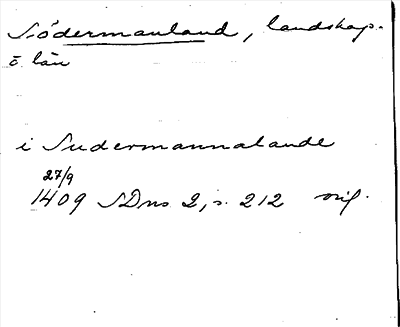 Södermanland, landskap
o. län
i Sudermannalande
27/9
1409 SDns 2, s. 212 orig.